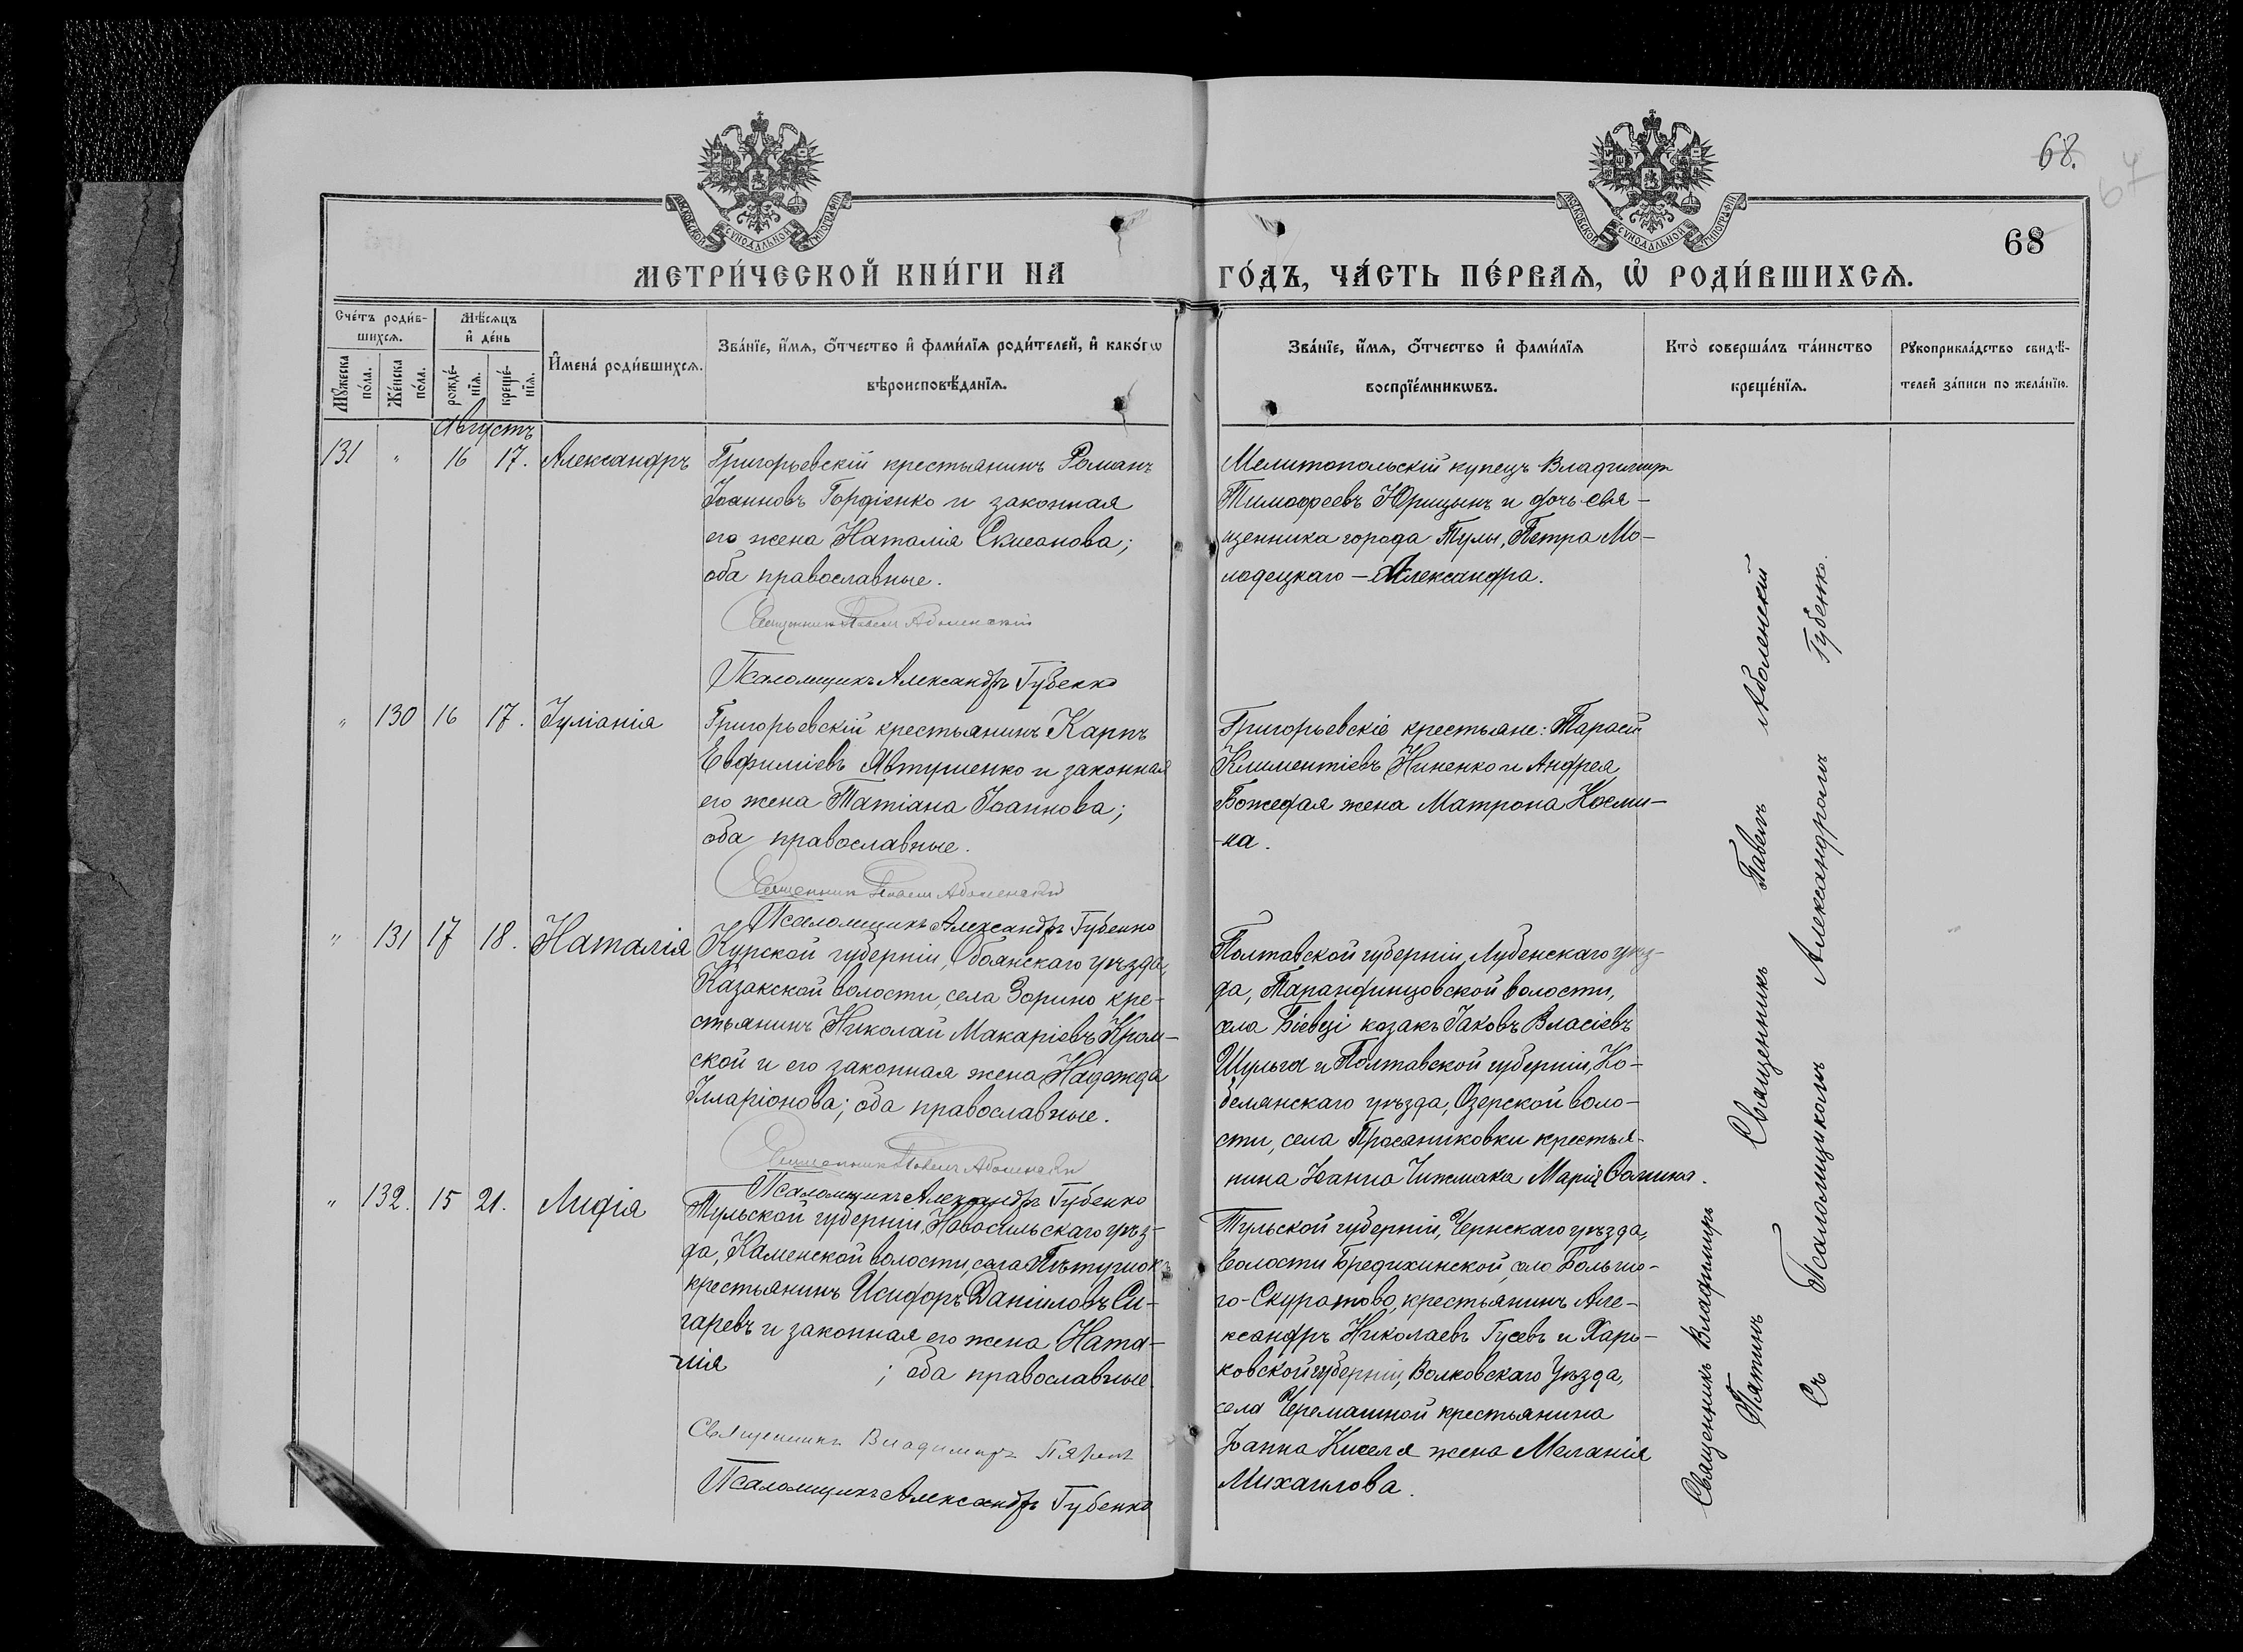 68.
67
МОСКОВСКОЙ СѴНОДАЛЬНОЙ ТИПОГРАФІИ
МОСКОВСКОЙ СѴНОДАЛЬНОЙ ТИПОГРАФІИ
68
МЕТРИ́ЧЕСКОЙ КНИ́ГИ НА
ГО́ДЪ, ЧА́СТЬ ПЕ́РВАѦ, Ѡ҆ РОДИ́ВШИХСѦ.
Сче́тъ роди́в-
шихсѧ.
Мꙋ́жеска
по́ла.
Же́нска
по́ла.
Мѣ́сѧцъ
и҆ де́нь
рожде́-
нїѧ.
креще́-
нїѧ.
И҆мена̀ роди́вшихсѧ.
Зва́нїе, и҆́мѧ, ѻ҆́тчество и҆ фами́лїѧ роди́телей, и҆ како́гѡ
вѣроисповѣ́данїѧ.
Зва́нїе, и҆́мѧ, ѻ҆́тчество и҆ фами́лїѧ
воспрїе́мникѡвъ.
Кто̀ соверша́лъ та́инство
креще́нїѧ.
Рꙋкоприкла́дство свидѣ́-
телей за́писи по жела́нїю.
Августъ
131 " 16 17. Александръ
Григорьевскій крестьянинъ Романъ
Іоанновъ Гордіенко и законная
его жена Наталія
оба православные.
Священникъ Павелъ Аболенскій
Псаломщикъ Александръ Губенко
Мелитопольскій купецъ Владиміръ
Тимофеевъ Юрицынъ и дочь свя-
щенника города Тулы, Петра Мо-
лодецкаго – Александра.
" 130 16 17. Іуліанія
Григорьевскій крестьянинъ Карпъ
Евфиміевъ Явтушенко и законная
его жена Татіана Іоаннова;
оба православные.
Священникъ Павелъ Аболенскій
Псаломщикъ Александръ Губенко
Григорьевскіе крестьяне: Тарасій
Климентіевъ Ниненко и Андрея
жена Матрона Косми-
-на.
" 131 17 18. Наталія
Курской губерніи, Обоянскаго уѣзда,
Казакской волости, села Зорино кре-
стьянинъ Николай Макаріевъ Кром-
ской и его законная жена Надежда
Илларіонова; оба православные.
Священникъ Павелъ Аболенскій
Псаломщикъ Александръ Губенко
Полтавской губерніи, Лубенскаго уѣз-
да, Тарандинцовской волости,
села Біевці козакъ Іаковъ Власіевъ
Шульга и Полтавской губерніи, Ко-
белянскаго уѣзда, Озерской воло-
сти, села Просяниковки крестья-
нина Іоанна Чижмака Марія
" 132. 15 21. Лидія
Тульской губерніи, Новосильскаго уѣз-
да, Каменской волости, села Пѣтушокъ
крестьянинъ Исидоръ Даніиловъ Си-
гаревъ и законная его жена Ната-
лія ; оба православные.
Священникъ Владиміръ Пятинъ
Псаломщикъ Александръ Губенко
Тульской губерніи, Чернскаго уѣзда,
волости Бредихинской, село Больше-
го-Скуратово, крестьянинъ Але-
ксандръ Николаевъ Гусевъ и Харь-
ковской губерніи, Волковскаго Уѣзда,
села Черемашной крестьянина
Іоанна Киселя жена Меланія
Михаилова.
Священникъ Павелъ Аболенскій
Священникъ Владиміръ
Пятинъ
Съ Псаломщикомъ Александромъ Губенко.